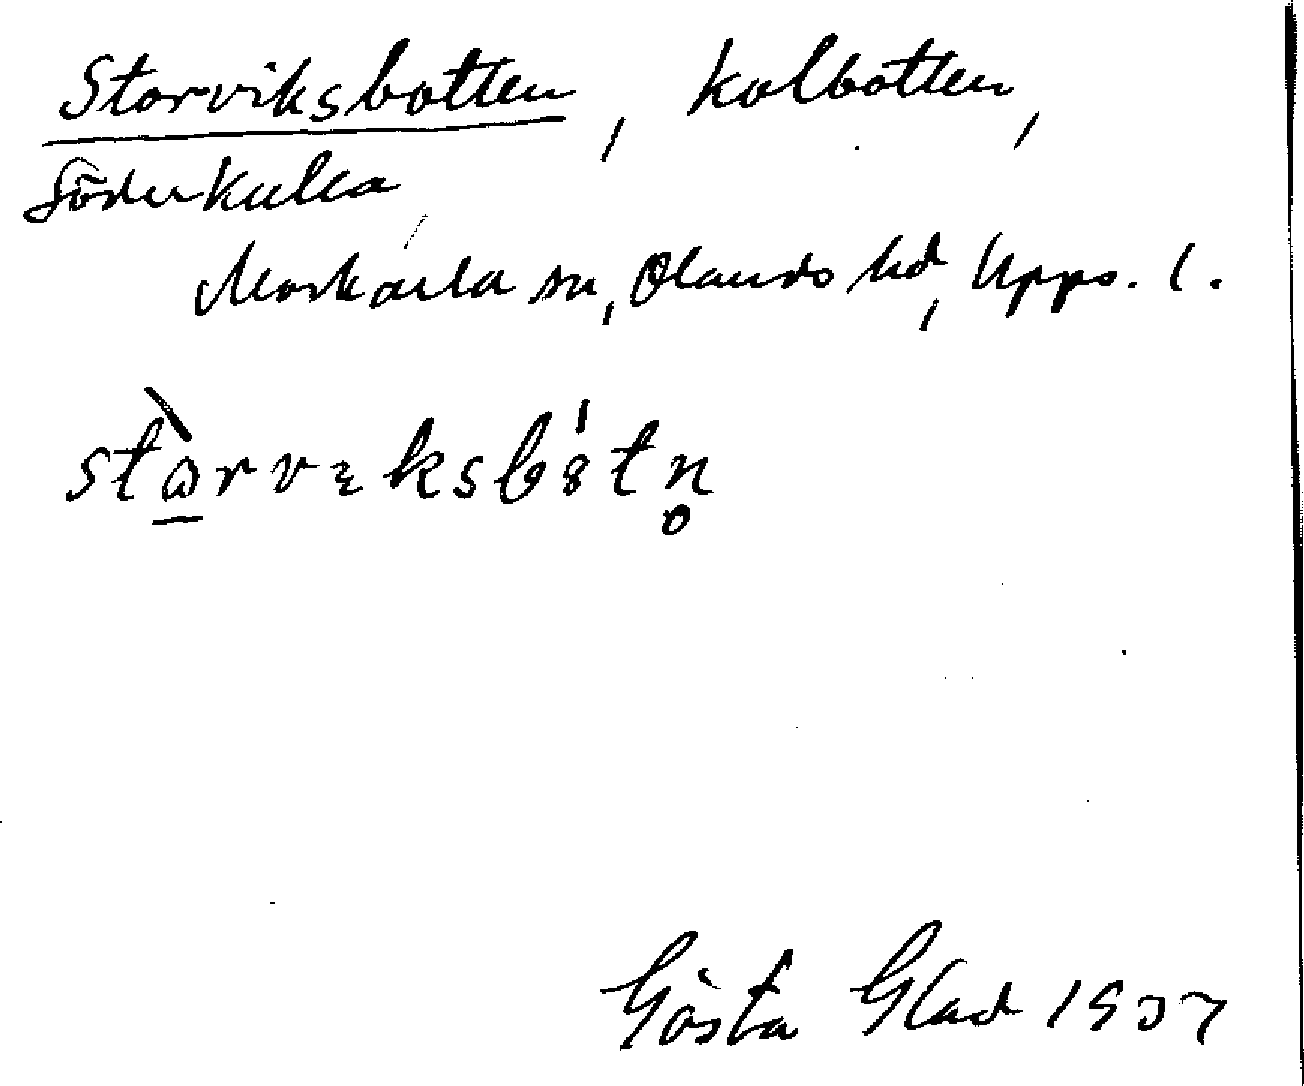 Storviksbotten, kolbotten,
Söderkulla,
Morkarla sn, Olands hd, Upps. l.
stɷ̠̀rvɛksbȣ́tn̥
Gösta Glad 1937